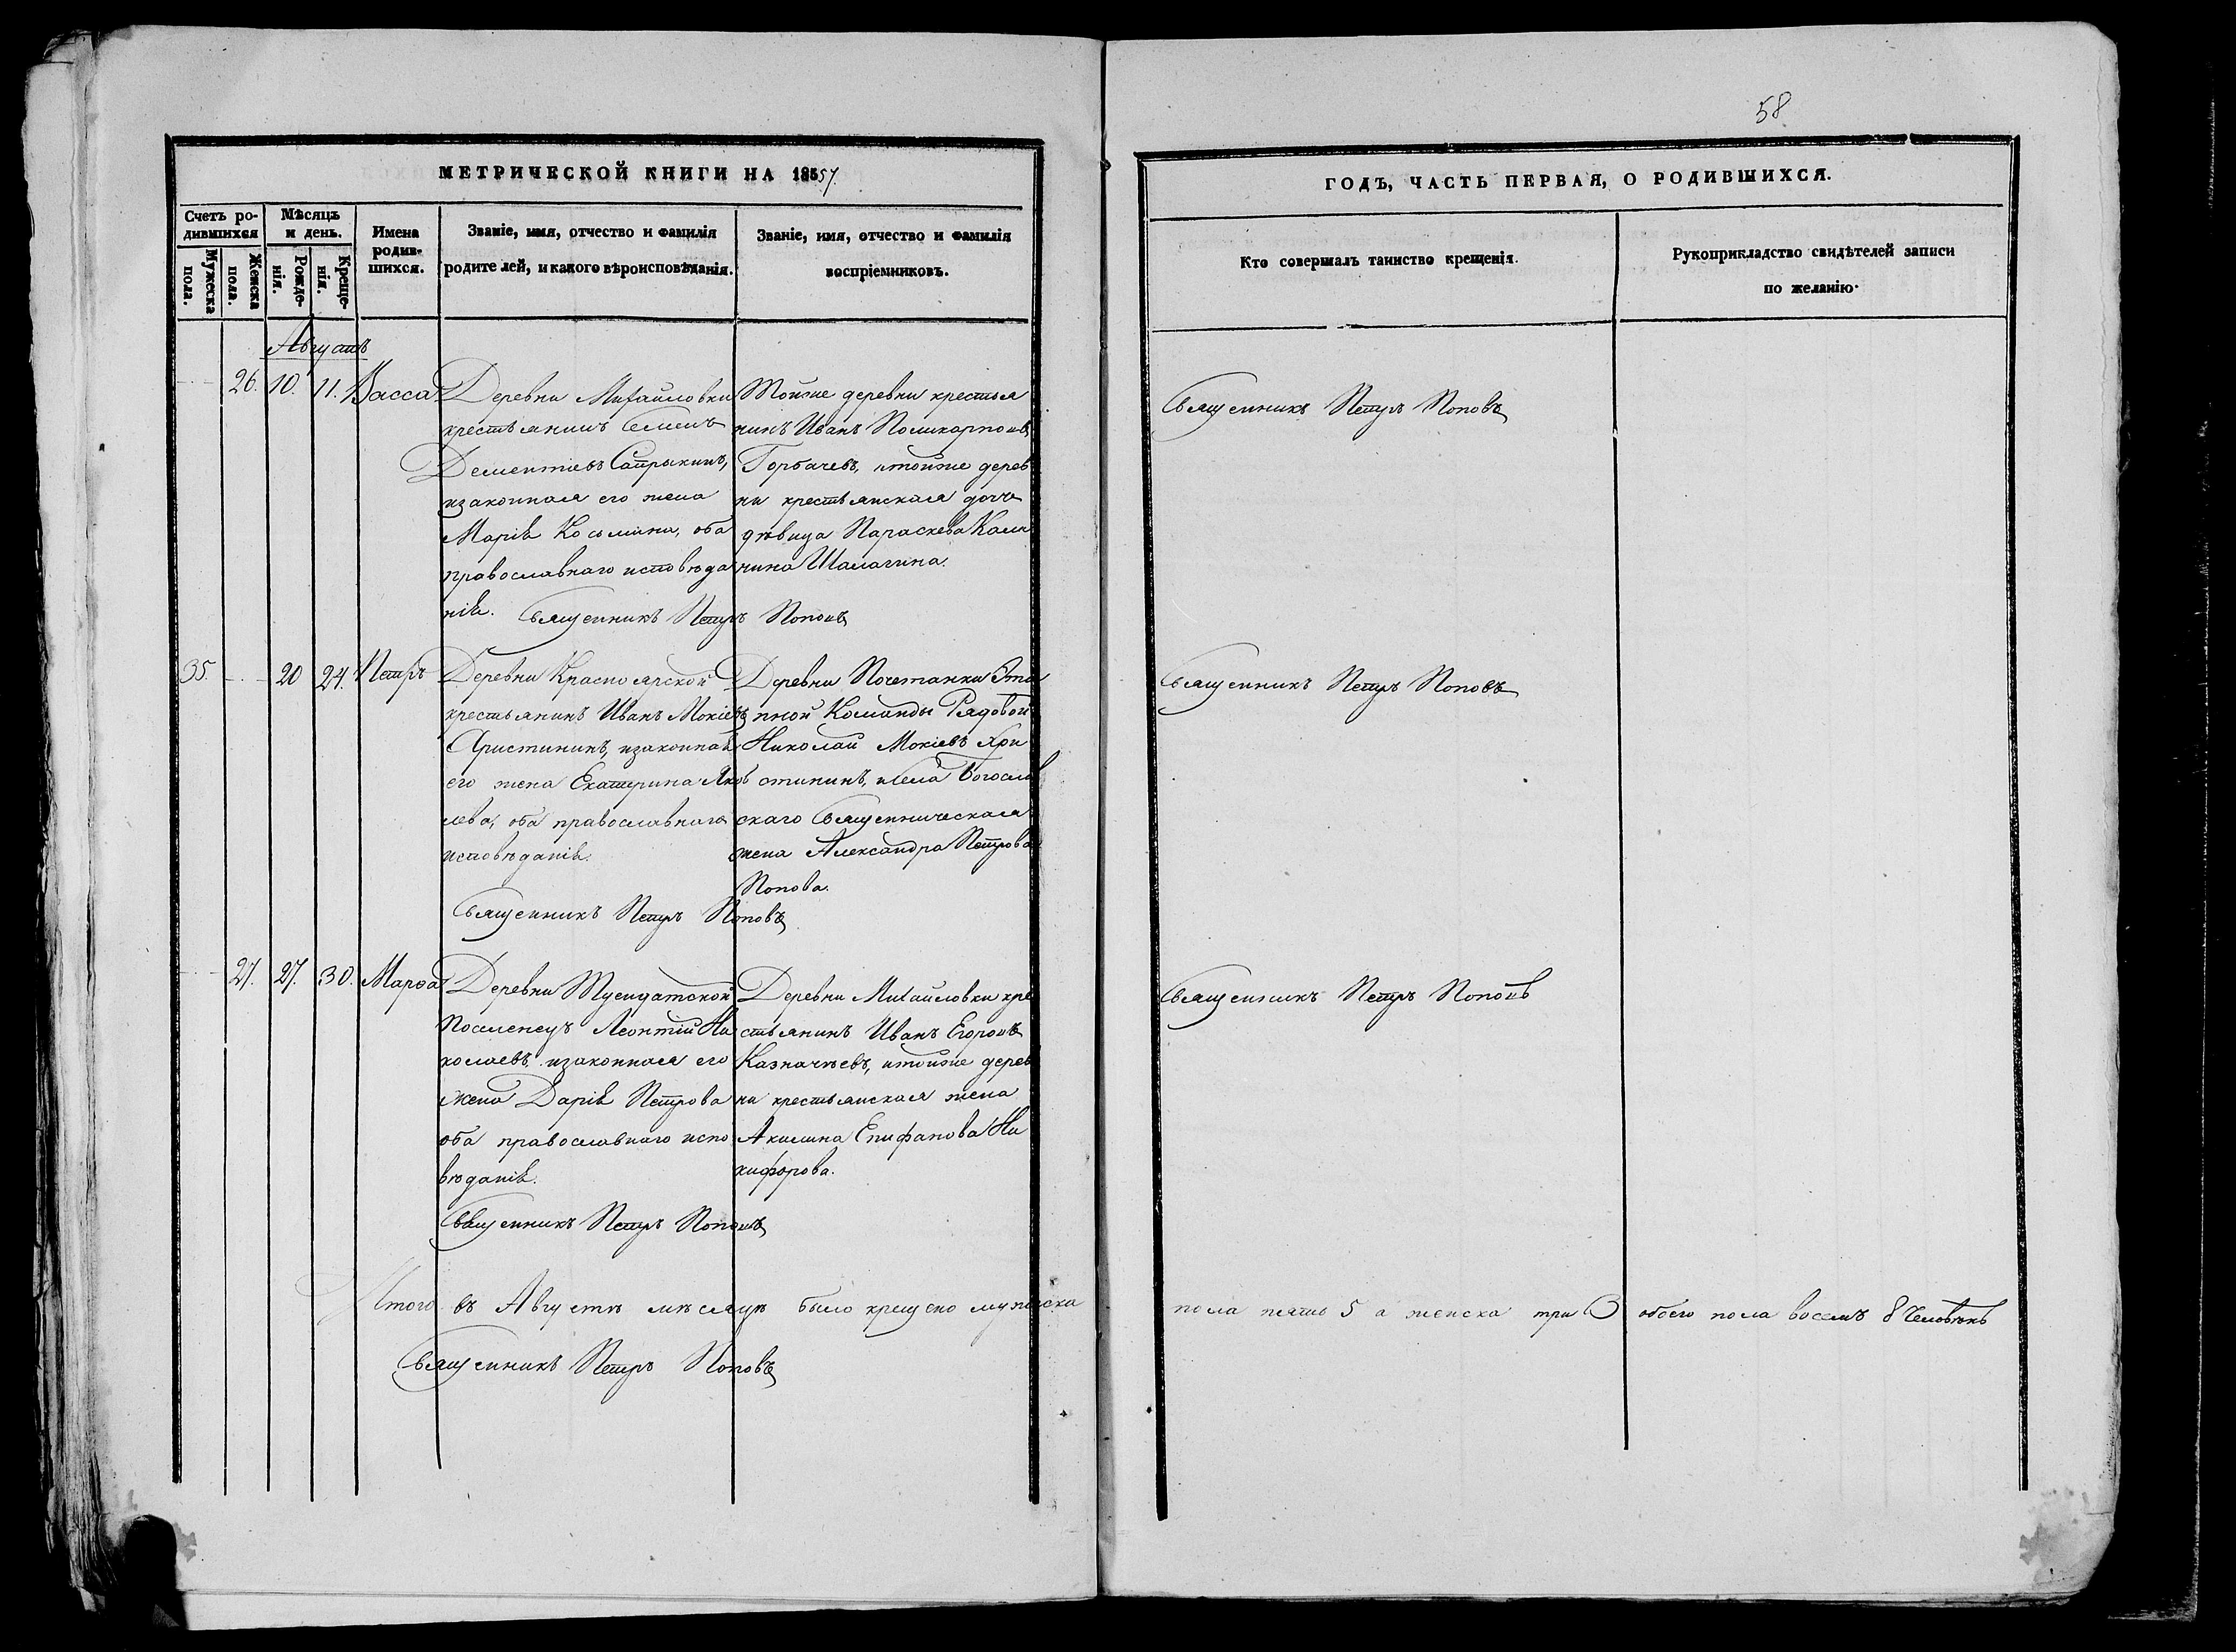 58
МЕТРИЧЕСКОЙ КНИГИ НА 1857.
ГОДЪ, ЧАСТЬ ПЕРВАЯ, О РОДИВШИХСЯ.
Счетъ ро-
дившихся
Мужеска
пола.
Женска
пола.
Мѣсяцъ
и день.
Рожде-
нія.
Креще-
нія.
Имена
родив-
шихся.
Званіе, имя, отчество и фамилія
родителей, и какого вѣроисповѣданія.
Званіе, имя, отчество и фамилія
воспріемниковъ.
Кто совершалъ таинство крещенія.
Рукоприкладство свидѣтелей записи
по желанію.
Августъ
26. 10. 11. Васса
Деревни Михайловки
крестьянинъ Семенъ
Дементіевъ Сапрыкинъ,
изаконная его жена
Марія Косьмина, оба
православнаго исповѣда
нія.
Тойже деревни крестья
нинъ Иванъ Поликарповъ
Горбачевъ, итойже дерев
ни крестьянская дочь
дѣвица Параскева Кали
нина Шалагина.
Священникъ Петръ Поповъ
Священникъ Петръ Поповъ
35. 20 24. Петръ
Деревни Красноярской
крестьянинъ Иванъ Мокіевъ
Христининъ, изаконная
его жена Екатерина Яков
лева, оба православнаго
исповѣданія.
Деревни Почетанки Эта
пной Команды Рядовой
Николай Мокіевъ Хри
стининъ, исела Богослов
скаго Священническая
жена Александра Петрова
Попова.
Священникъ Петръ Поповъ
Священникъ Петръ Поповъ
27. 27. 30. Марѳа
Деревни Тусидатской
Поселенецъ Леонтій Ни
колаевъ, изаконная его
жена Дарія Петрова
оба православнаго испо
вѣданія.
Деревни Михайловки кре
стьянинъ Иванъ Егоровъ
Казначѣевъ, итойже дерев
ни крестьянская жена
Акилина Епифанова Ни
кифорова.
Священникъ Петръ Поповъ
Священникъ Петръ Поповъ
Итого въ Августѣ мѣсяцѣ было крещено мужеска пола пять 5 а женска три 3 обоего пола восемь 8 Человѣкъ
Священникъ Петръ Поповъ